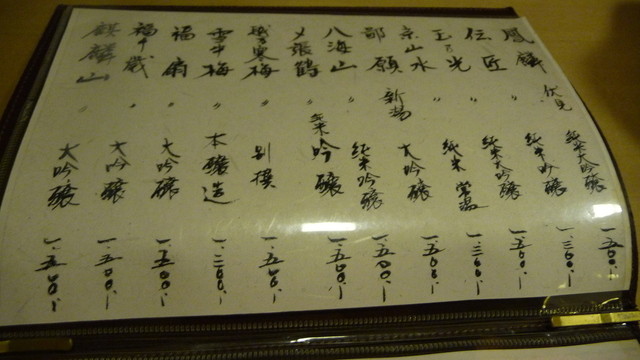 鳳麟 伏見 純米大吟醸 一.五〇〇.-
伝匠 〃 純米吟醸 一.三〇〇.-
玉乃光 〃 純米大吟醸 一.五〇〇.-
京山水 〃 純米 常温 一.三〇〇.-
鄙願 新潟 大吟醸 一.五〇〇.-
八海山 〃 純米吟醸 一.五〇〇.-
〆張鶴 〃 純米吟醸 一.五〇〇.-
越乃寒梅 〃 別撰 一.五〇〇.-
雪中梅 〃 本醸造 一.二〇〇.-
福扇 〃 大吟醸 一.五〇〇.-
福千歳 〃 大吟醸 一.五〇〇.-
麒麟山 〃 大吟醸 一.五〇〇.-